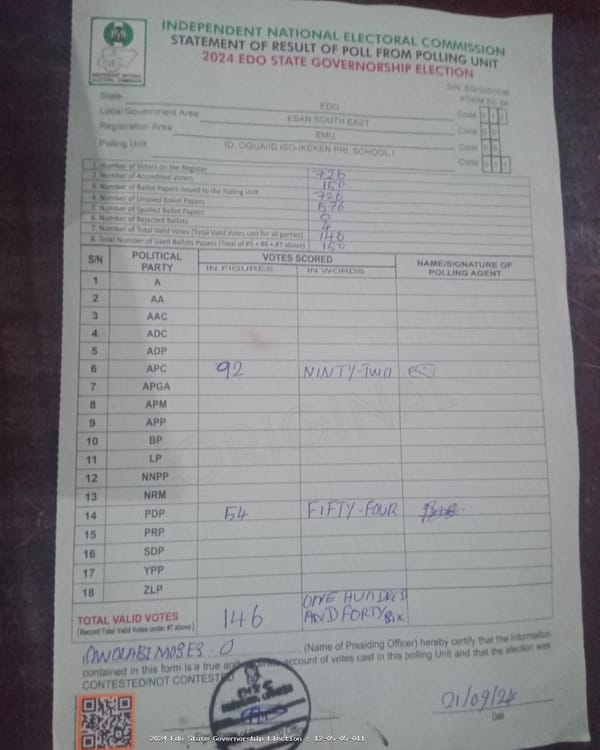 INDEPENDENT NATIONAL ELECTORAL COMMISSION
STATEMENT OF RESULT OF POLL FROM POLLING UNIT
2024 EDO STATE GOVERNORSHIP ELECTION
INDEPENDENT NATIONAL
ELECTORAL COMMISSION
FORM EC 8A
State EDO Code
Local Government Area ESAN SOUTH EAST Code
Registration Area EMU Code
Polling Unit ID. OGUA/ID ISO-IKEKEN PRI. SCHOOL I Code
1. Number of Voters on the Register 726
2. Number of Accredited Voters 150
3. Number of Ballot Papers Issued to the Polling Unit 726
4. Number of Unused Ballot Papers 576
5. Number of Spoiled Ballot Papers 0
6. Number of Rejected Ballots 4
7. Number of Total Valid Votes (Total Valid Votes cast for all parties) 146
8. Total Number of Used Ballots Papers (Total of #5 + #6 + #7 above) 150
S/N POLITICAL PARTY VOTES SCORED NAME/SIGNATURE OF POLLING AGENT
IN FIGURES IN WORDS
1 A
2 AA
3 AAC
4 ADC
5 ADP
6 APC 92 NINTY-TWO
7 APGA
8 APM
9 APP
10 BP
11 LP
12 NNPP
13 NRM
14 PDP 54 FIFTY-FOUR
15 PRP
16 SDP
17 YPP
18 ZLP
TOTAL VALID VOTES 146 ONE HUNDRED AND FORTY SIX
(Record Total Valid Votes under #7 above)
I OWOLABI MOSES. O (Name of Presiding Officer) hereby certify that the information
contained in this form is a true and account of votes cast in this polling Unit and that the election was
CONTESTED/NOT CONTESTED
21/09/24
Date
ORIGINAL
2024 Edo State Governorship Election : 12-05-05-011